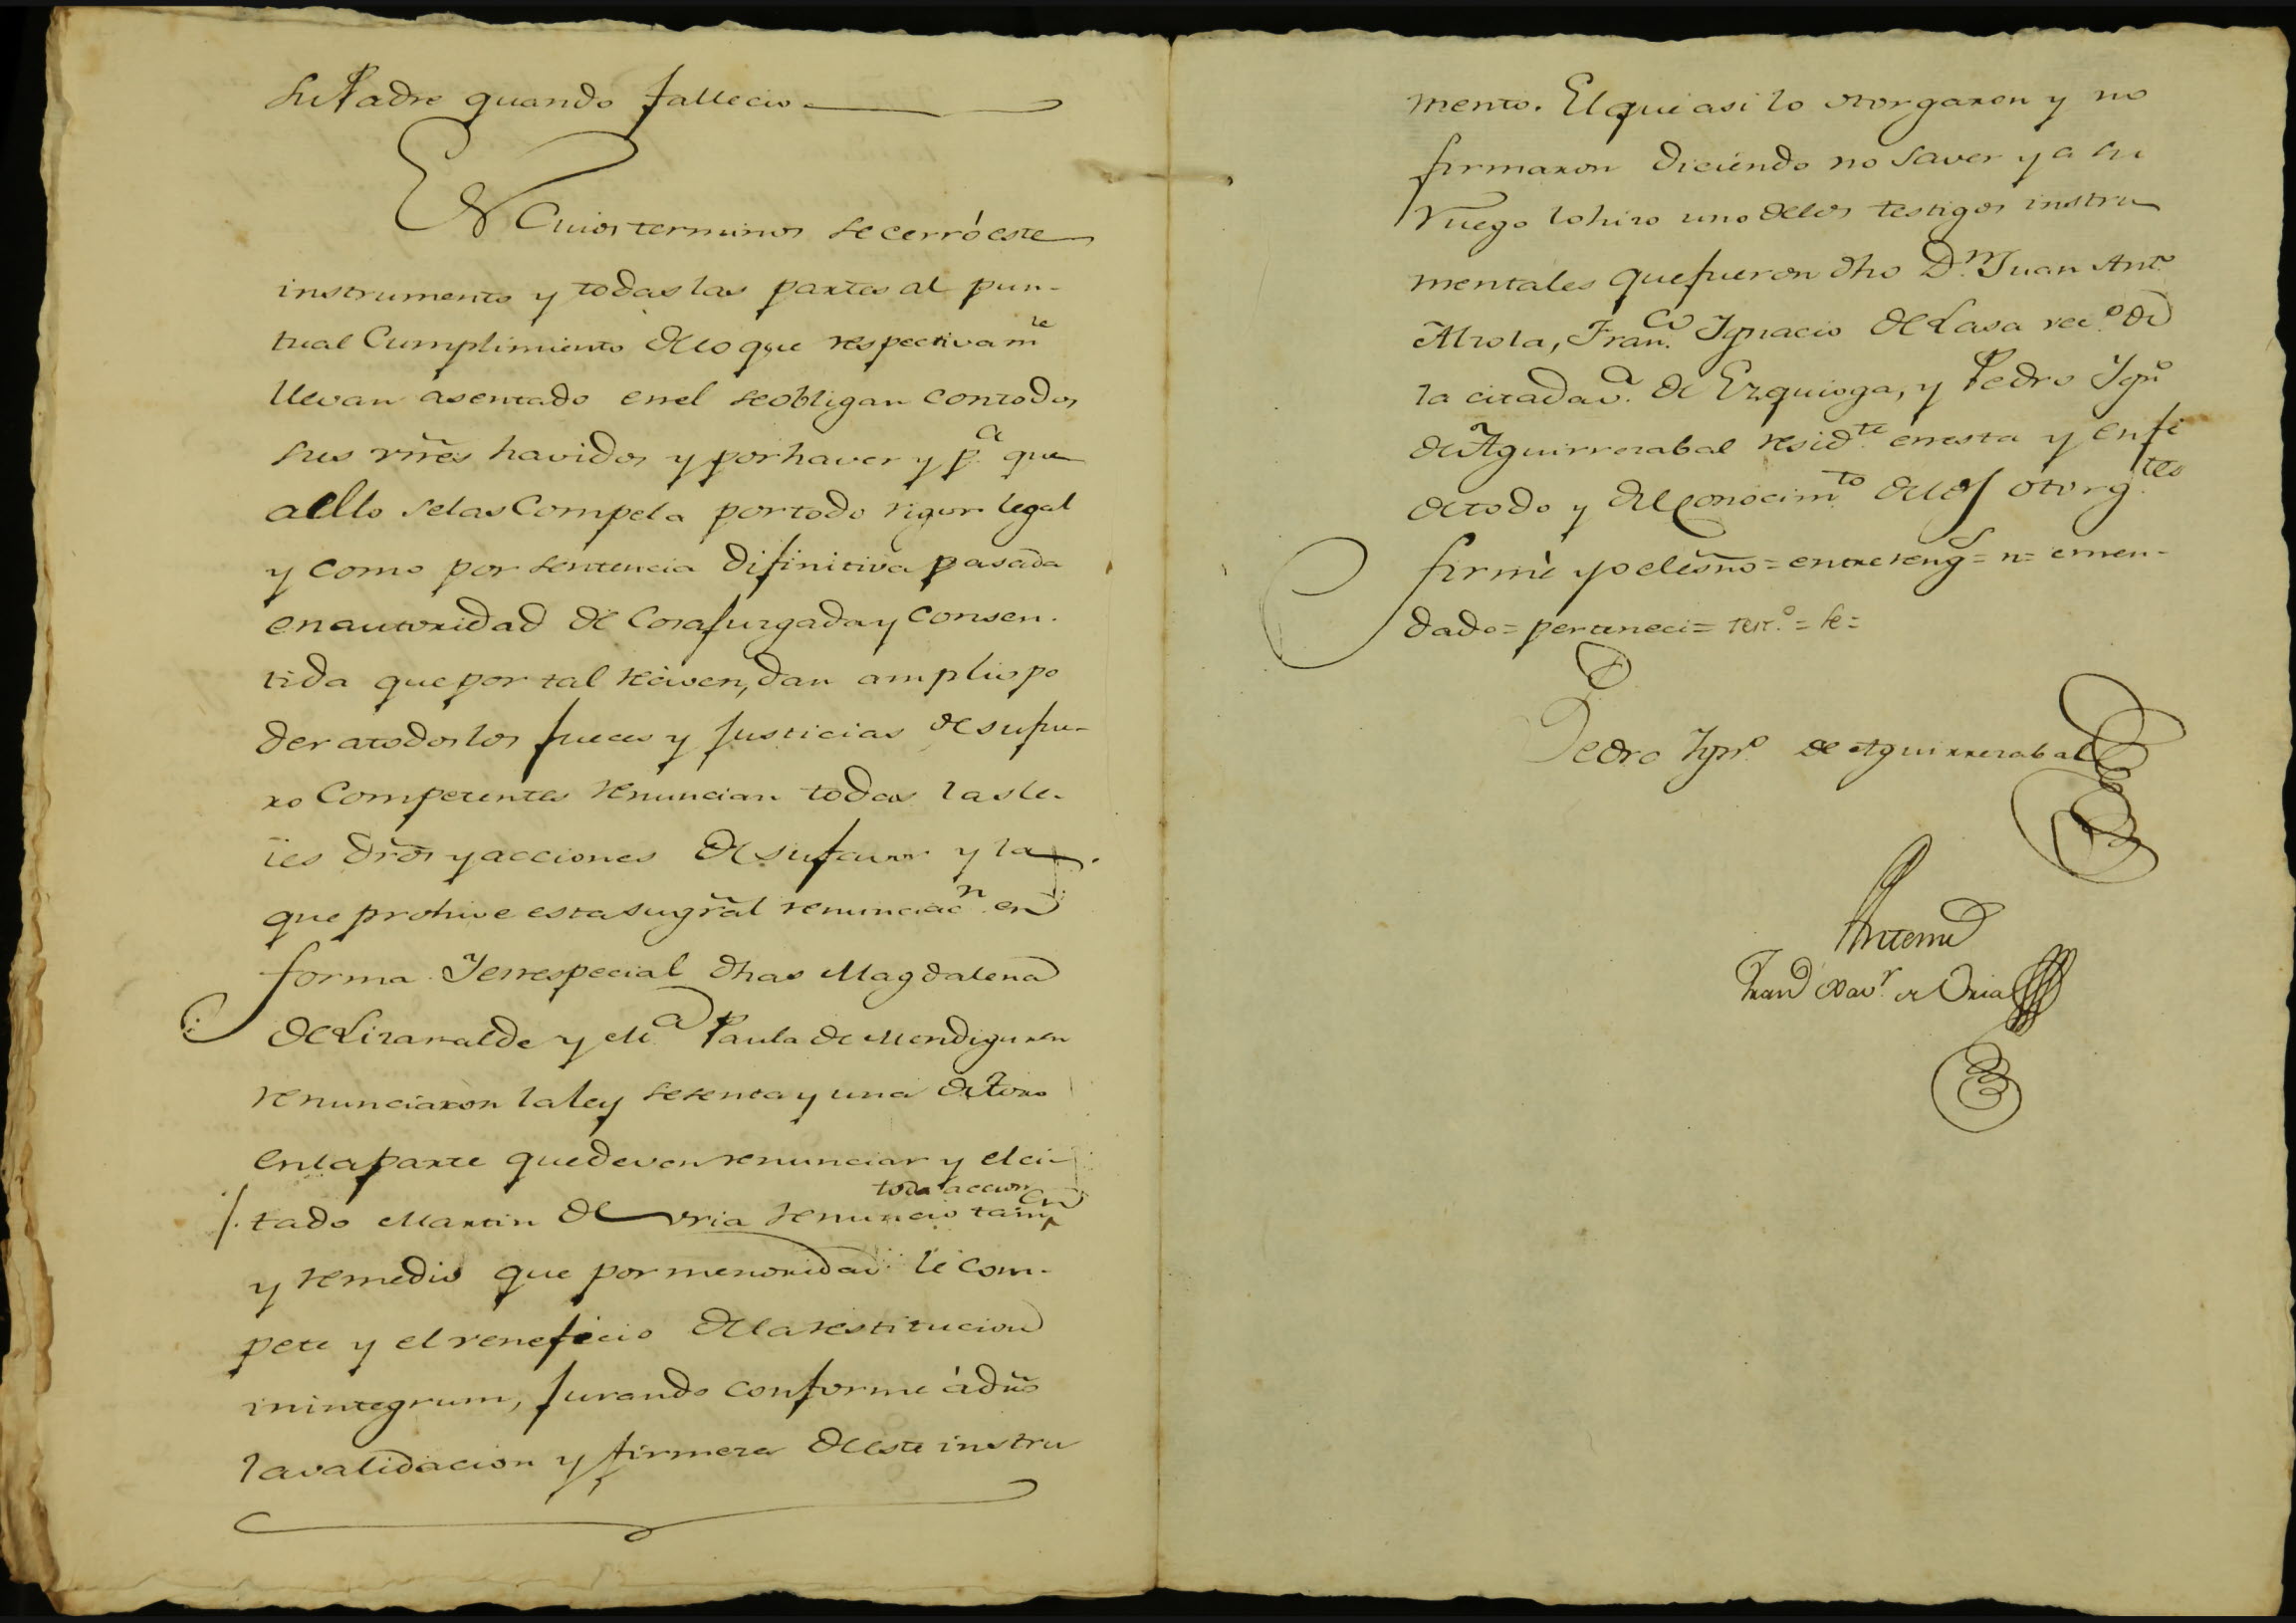 su Padre quando fallecio
En Cuios terminos se cerró este
instrumento y todas las partes al pun-
tual Cumplimiento de lo que respectivam.te
llevan asentado en el se obligan con todos
sus vnẽs havidos y por haver y p.a que
a ello se las Compela por todo rigor legal
y como por sentencia difinitiva pasada
en autoridad de Cosa juzgada y consen-
tida que por tal reciven, dan amplio po
der a todos los jueces y justicias de su fue-
ro Competentes renuncian todas las le-
ies drõs y acciones de su favor y la
que prohive esta su gral renunciac.n en
forma. Y en especial dhas Magdalena
de Lizaralde y M.a Paula de Mendiguren
renunciaron la ley sesenta y una de Toro
en la parte que deven renunciar y el ci-
toda accion
tado Martin de Vria renuncio tam.en
y remedio que por menoridad le com-
pete y el veneficio de la restitucion
in integrum, jurando conforme à dro
la validacion y firmeza de este instru
mento. El qui asi lo otorgaron y no
firmaron diciendo no saver y a su
ruego lo hizo uno de los testigos instru
mentales que fueron dho D.n Juan Ant.o
Alzola, Fran.co Ignacio de Lasa vec.o de
la citada v.a de Ezquioga, y Pedro Ign.o
de Aguirrezabal resid.te en esta y en fe
de todo y del Conocim.to de los otorg.tes
firmè yo el esno = entre reng.s = n = emen-
dado = perteneci = terr.o = se =
Pedro Ign.o de Aguirrezabal
Antemi
Fran.co Xav.r de Oria